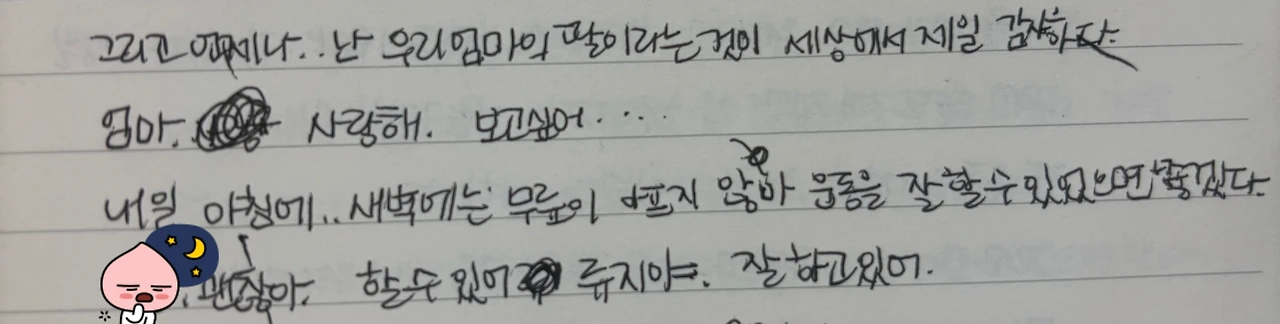 그리고 언제나.. 난 우리엄마의 딸이라는것이 세상에서 제일 감사하다.
엄마. 사랑해. 보고싶어....
내일 아침에.. 새벽에는 무릎이 아프지 않아 운동을 잘할수있었으면 좋겠다.
괜찮아. 할수있어 류지야. 잘하고있어.